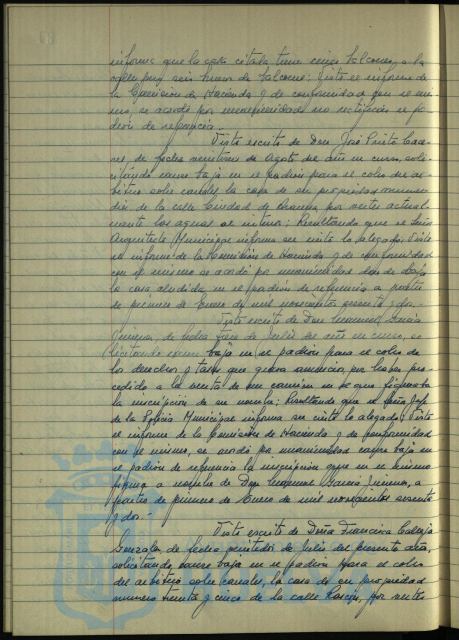 informe que la casa citada tiene cinco balcones a la
calle y seis huecos de balcones; Visto el informe de
la Comisión de Hacienda y de conformidad con el mis-
mo, se acordó por unanimidad no rectificar el pa-
drón de referencia.
Visto escrito de Don José Prieto Cáce-
res, de fecha veintiuno de Agosto del año en curso, soli-
citando cause baja en el padrón para el cobro del ar-
bitrio sobre canales la casa de su propiedad número
de la calle Ciudad de por verter actual-
mente las aguas al interior; Resultando que el Señor
Arquitecto Municipal informa ser cierto lo alegado; Visto
el informe de la Comisión de Hacienda y de conformidad
con el mismo se acordó por unanimidad dar de baja
la casa aludida en el padrón de referencia a partir
de primero de Enero de mil novecientos sesenta y dos.-
Visto escrito de Don Manuel García
Jimena, de fecha de Julio del año en curso, so-
licitando cause baja en el padrón para el cobro de
los derechos y tasas que grava anuncios, por haber pro-
cedido a la venta de un camión en el que figuraba
la inscripción de su nombre; Resultando que el Señor Jefe
de la Policía Municipal informa ser cierto lo alegado; Visto
el informe de la Comisión de Hacienda y de conformidad
con el mismo, se acordó por unanimidad cause baja en
el padrón de referencia la inscripción que en el mismo
figura a nombre de Don Manuel García Jimena, a
partir de primero de Enero de mil novecientos sesenta
y dos.-
Visto escrito de Doña Francisca Calleja
González, de fecha de Julio del presente año,
solicitando cause baja en el padrón para el cobro
del arbitrio sobre canales, la casa de su propiedad
número treinta y cinco de la calle Rascón, por verter